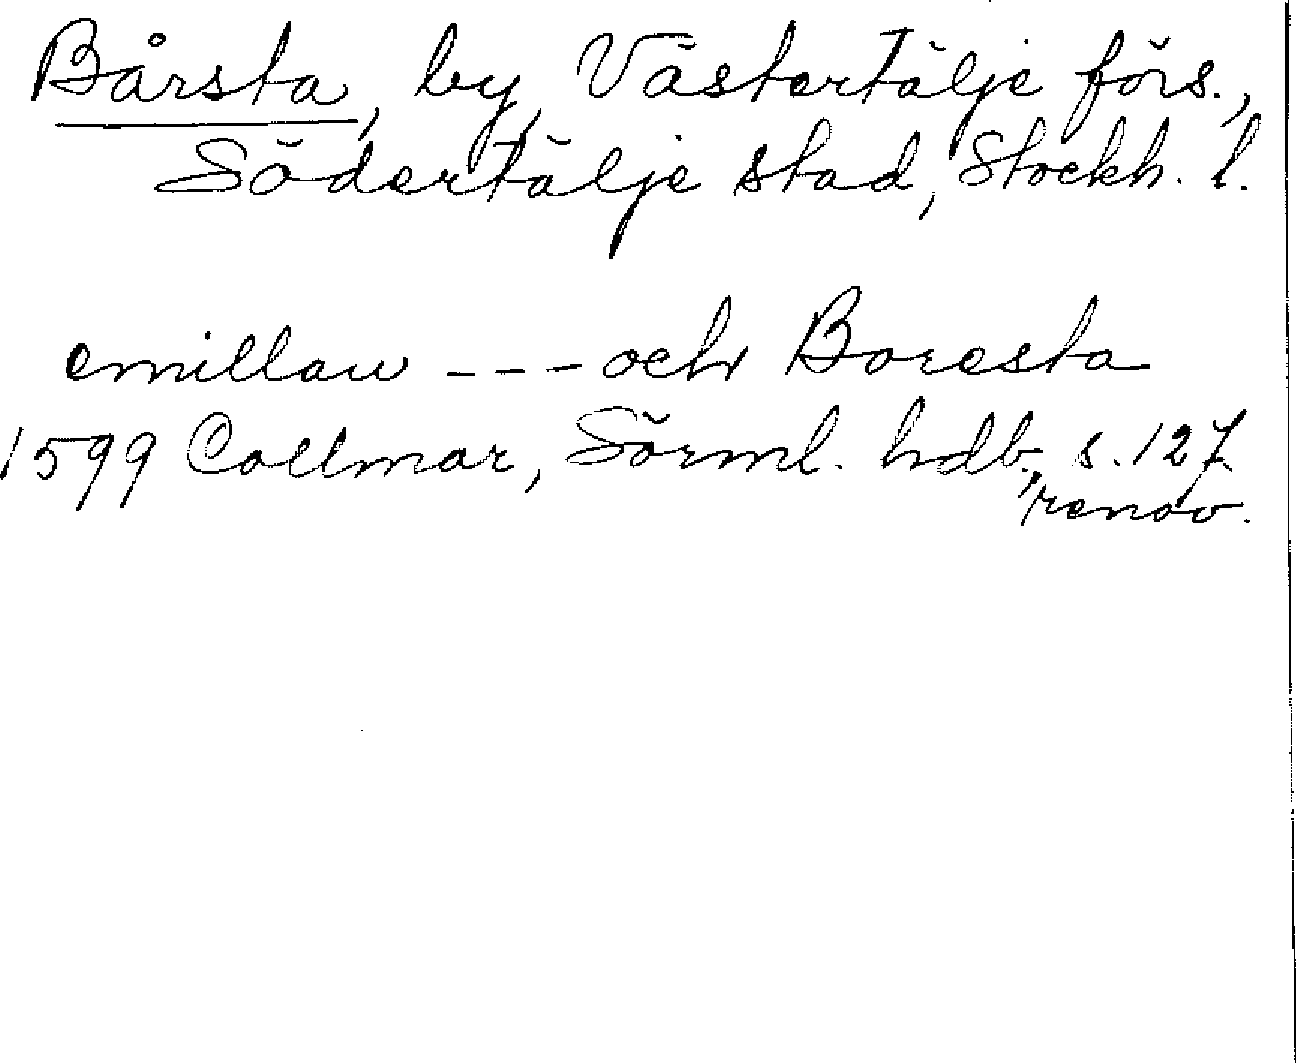 Bårsta, by, Västertälje förs.,
Södertälje stad, Stockh. l.
emillan --- och Boresta
1599 Collmar, Sörml. hdb., s. 127
renov.